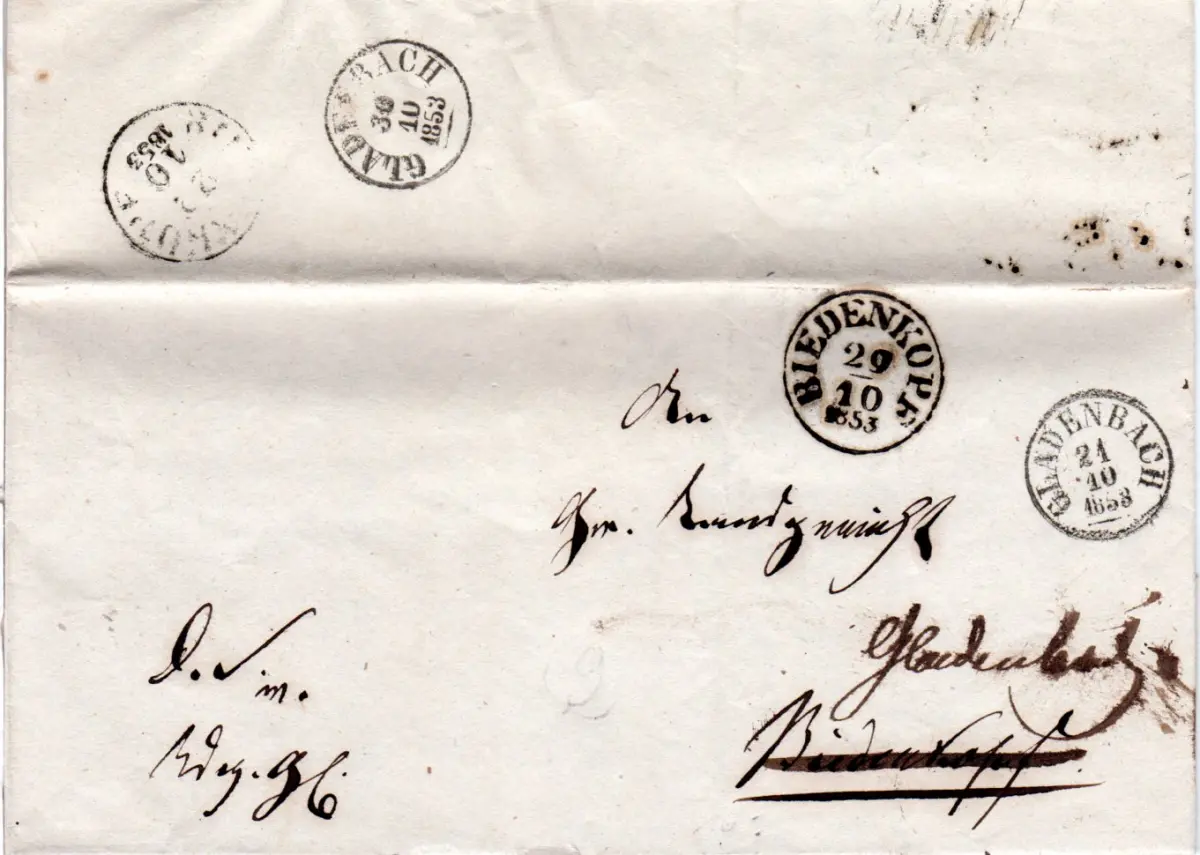 GLADENBACH
30
10
1853
10
1853
BIEDENKOPF
29
10
1853
GLADENBACH
21
10
1853
An
Gr. Landgericht
Gladenbach
Biedenkopf.
D. S.